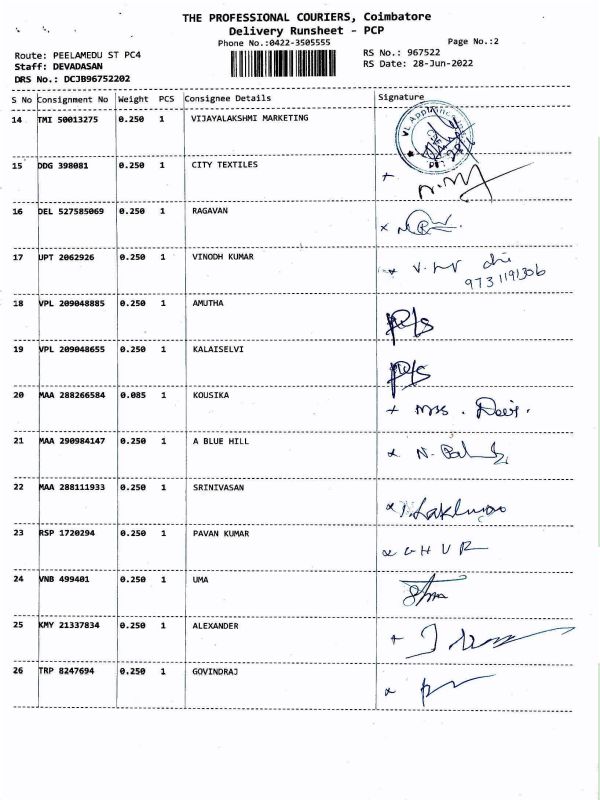 THE PROFESSIONAL COURIERS, Coimbatore
Delivery Runsheet - PCP
Phone No.:0422-3505555
Page No.:2
Route: PEELAMEDU ST PC4
RS No.: 967522
Staff: DEVADASAN
RS Date: 28-Jun-2022
DRS No.: DCJB96752202
S No Consignment No Weight PCS Consignee Details Signature
14 TMI 50013275 0.250 1 VIJAYALAKSHMI MARKETING
15 DDG 398081 0.250 1 CITY TEXTILES
16 DEL 527585069 0.250 1 RAGAVAN
17 UPT 2062926 0.250 1 VINODH KUMAR
9731191306
18 VPL 209048885 0.250 1 AMUTHA
19 VPL 209048655 0.250 1 KALAISELVI
20 MAA 288266584 0.085 1 KOUSIKA
21 MAA 290984147 0.250 1 A BLUE HILL
22 MAA 288111933 0.250 1 SRINIVASAN
23 RSP 1720294 0.250 1 PAVAN KUMAR
24 VNB 499401 0.250 1 UMA
25 KMY 21337834 0.250 1 ALEXANDER
26 TRP 8247694 0.250 1 GOVINDRAJ